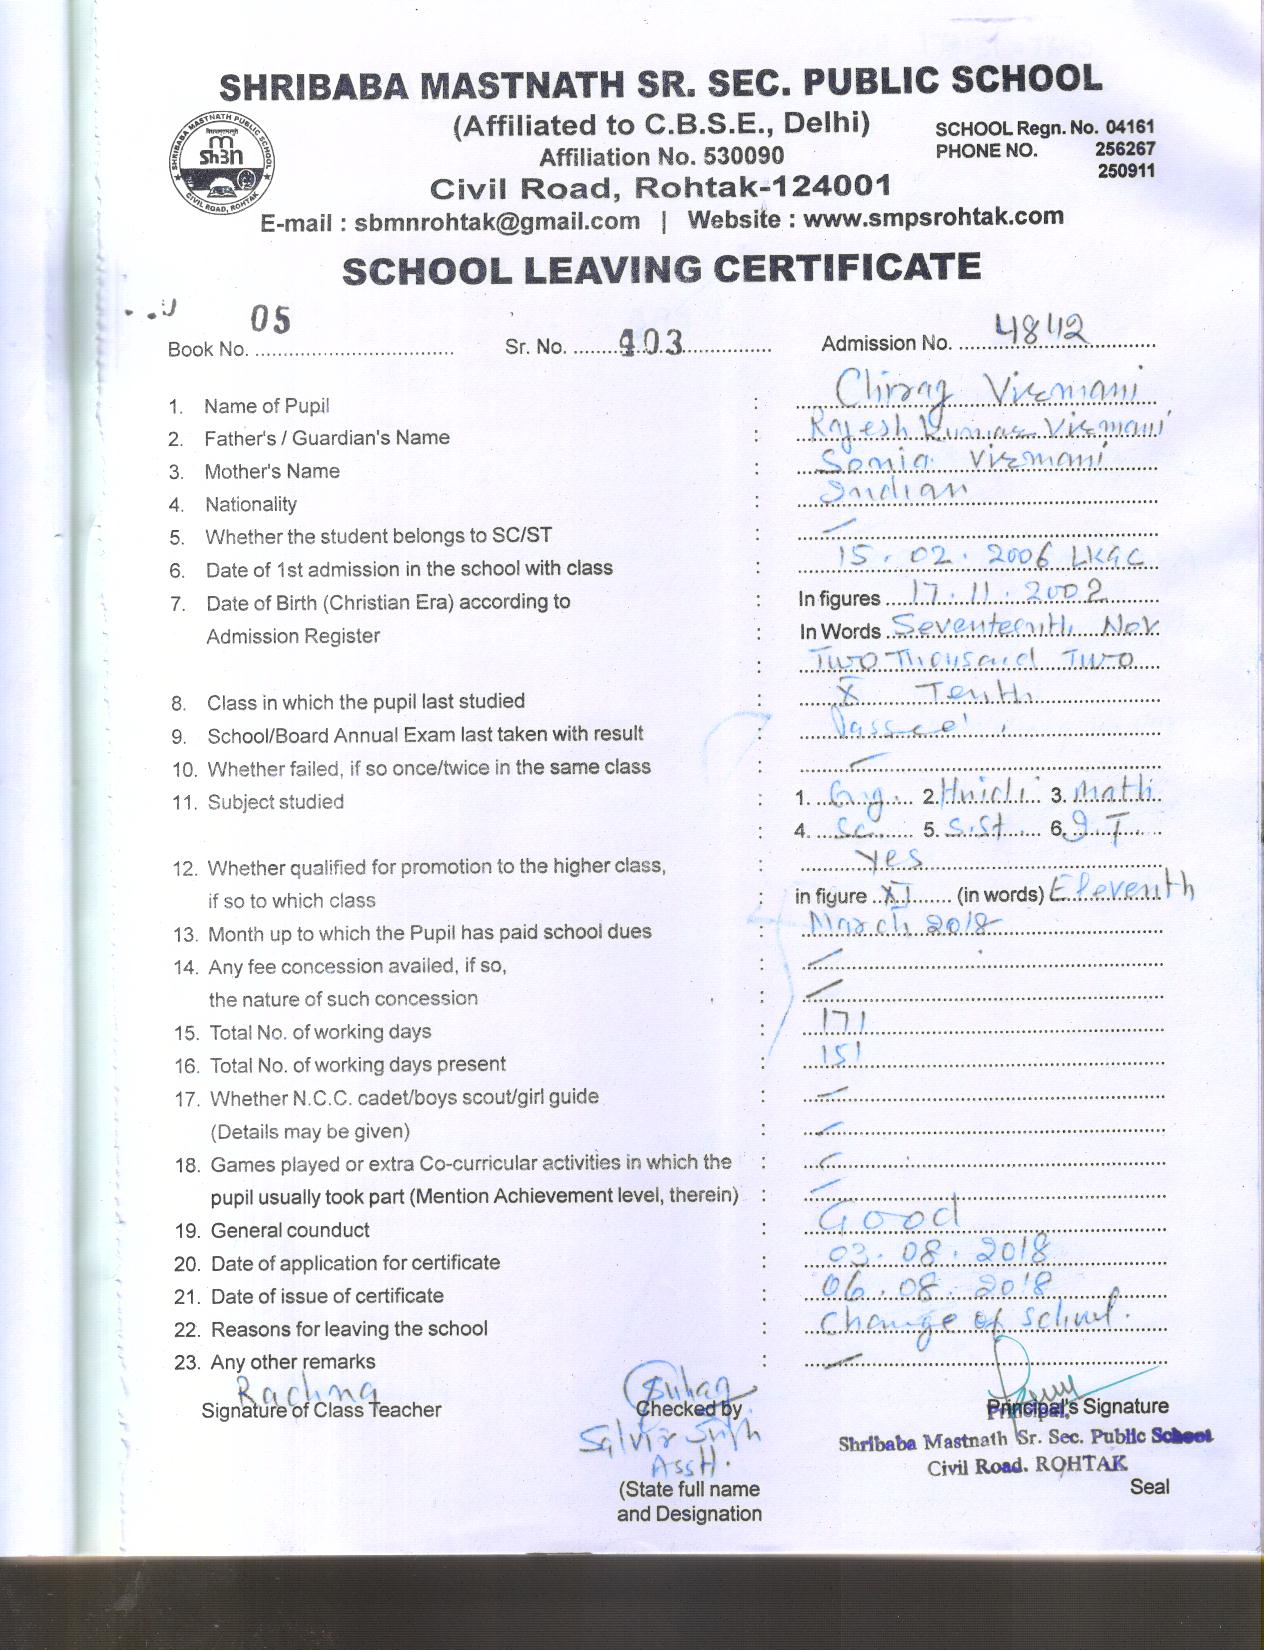 SHRIBABA MASTNATH SR. SEC. PUBLIC SCHOOL
(Affiliated to C.B.S.E., Delhi)
Affiliation No. 530090
SCHOOL Regn. No. 04161
PHONE NO. 256267
250911
Civil Road, Rohtak-124001
E-mail : sbmnrohtak@gmail.com | Website : www.smpsrohtak.com
SHRIBABA MASTNATH PUBLIC SCHOOL
CIVIL ROAD, ROHTAK
SCHOOL LEAVING CERTIFICATE
Book No. 05 Sr. No. 403 Admission No. 4842
1. Name of Pupil : Chirag Virmani
2. Father's / Guardian's Name : Rajesh Kumar Virmani
3. Mother's Name : Sonia Virmani
4. Nationality : Indian
5. Whether the student belongs to SC/ST : —
6. Date of 1st admission in the school with class : 15.02.2006 LKGC
7. Date of Birth (Christian Era) according to : In figures 17.11.2002
Admission Register : In Words Seventeenth Nov
: Two Thousand Two
8. Class in which the pupil last studied : X Tenth
9. School/Board Annual Exam last taken with result : Passed
10. Whether failed, if so once/twice in the same class : —
11. Subject studied : 1. Eng. 2. Hindi 3. Math
: 4. Sc. 5. S.St 6. I.T.
12. Whether qualified for promotion to the higher class, : Yes
if so to which class : in figure XI (in words) Eleventh
13. Month up to which the Pupil has paid school dues : March 2018
14. Any fee concession availed, if so, : —
the nature of such concession : —
15. Total No. of working days : 171
16. Total No. of working days present : 151
17. Whether N.C.C. cadet/boys scout/girl guide : —
(Details may be given) : —
18. Games played or extra Co-curricular activities in which the : —
pupil usually took part (Mention Achievement level, therein) : —
19. General counduct : Good
20. Date of application for certificate : 03.08.2018
21. Date of issue of certificate : 06.08.2018
22. Reasons for leaving the school : Change of school.
23. Any other remarks : —
Rachna
Signature of Class Teacher Checked by Principal's Signature
Asstt.
Shribaba Mastnath Sr. Sec. Public School
Civil Road. ROHTAK
(State full name Seal
and Designation